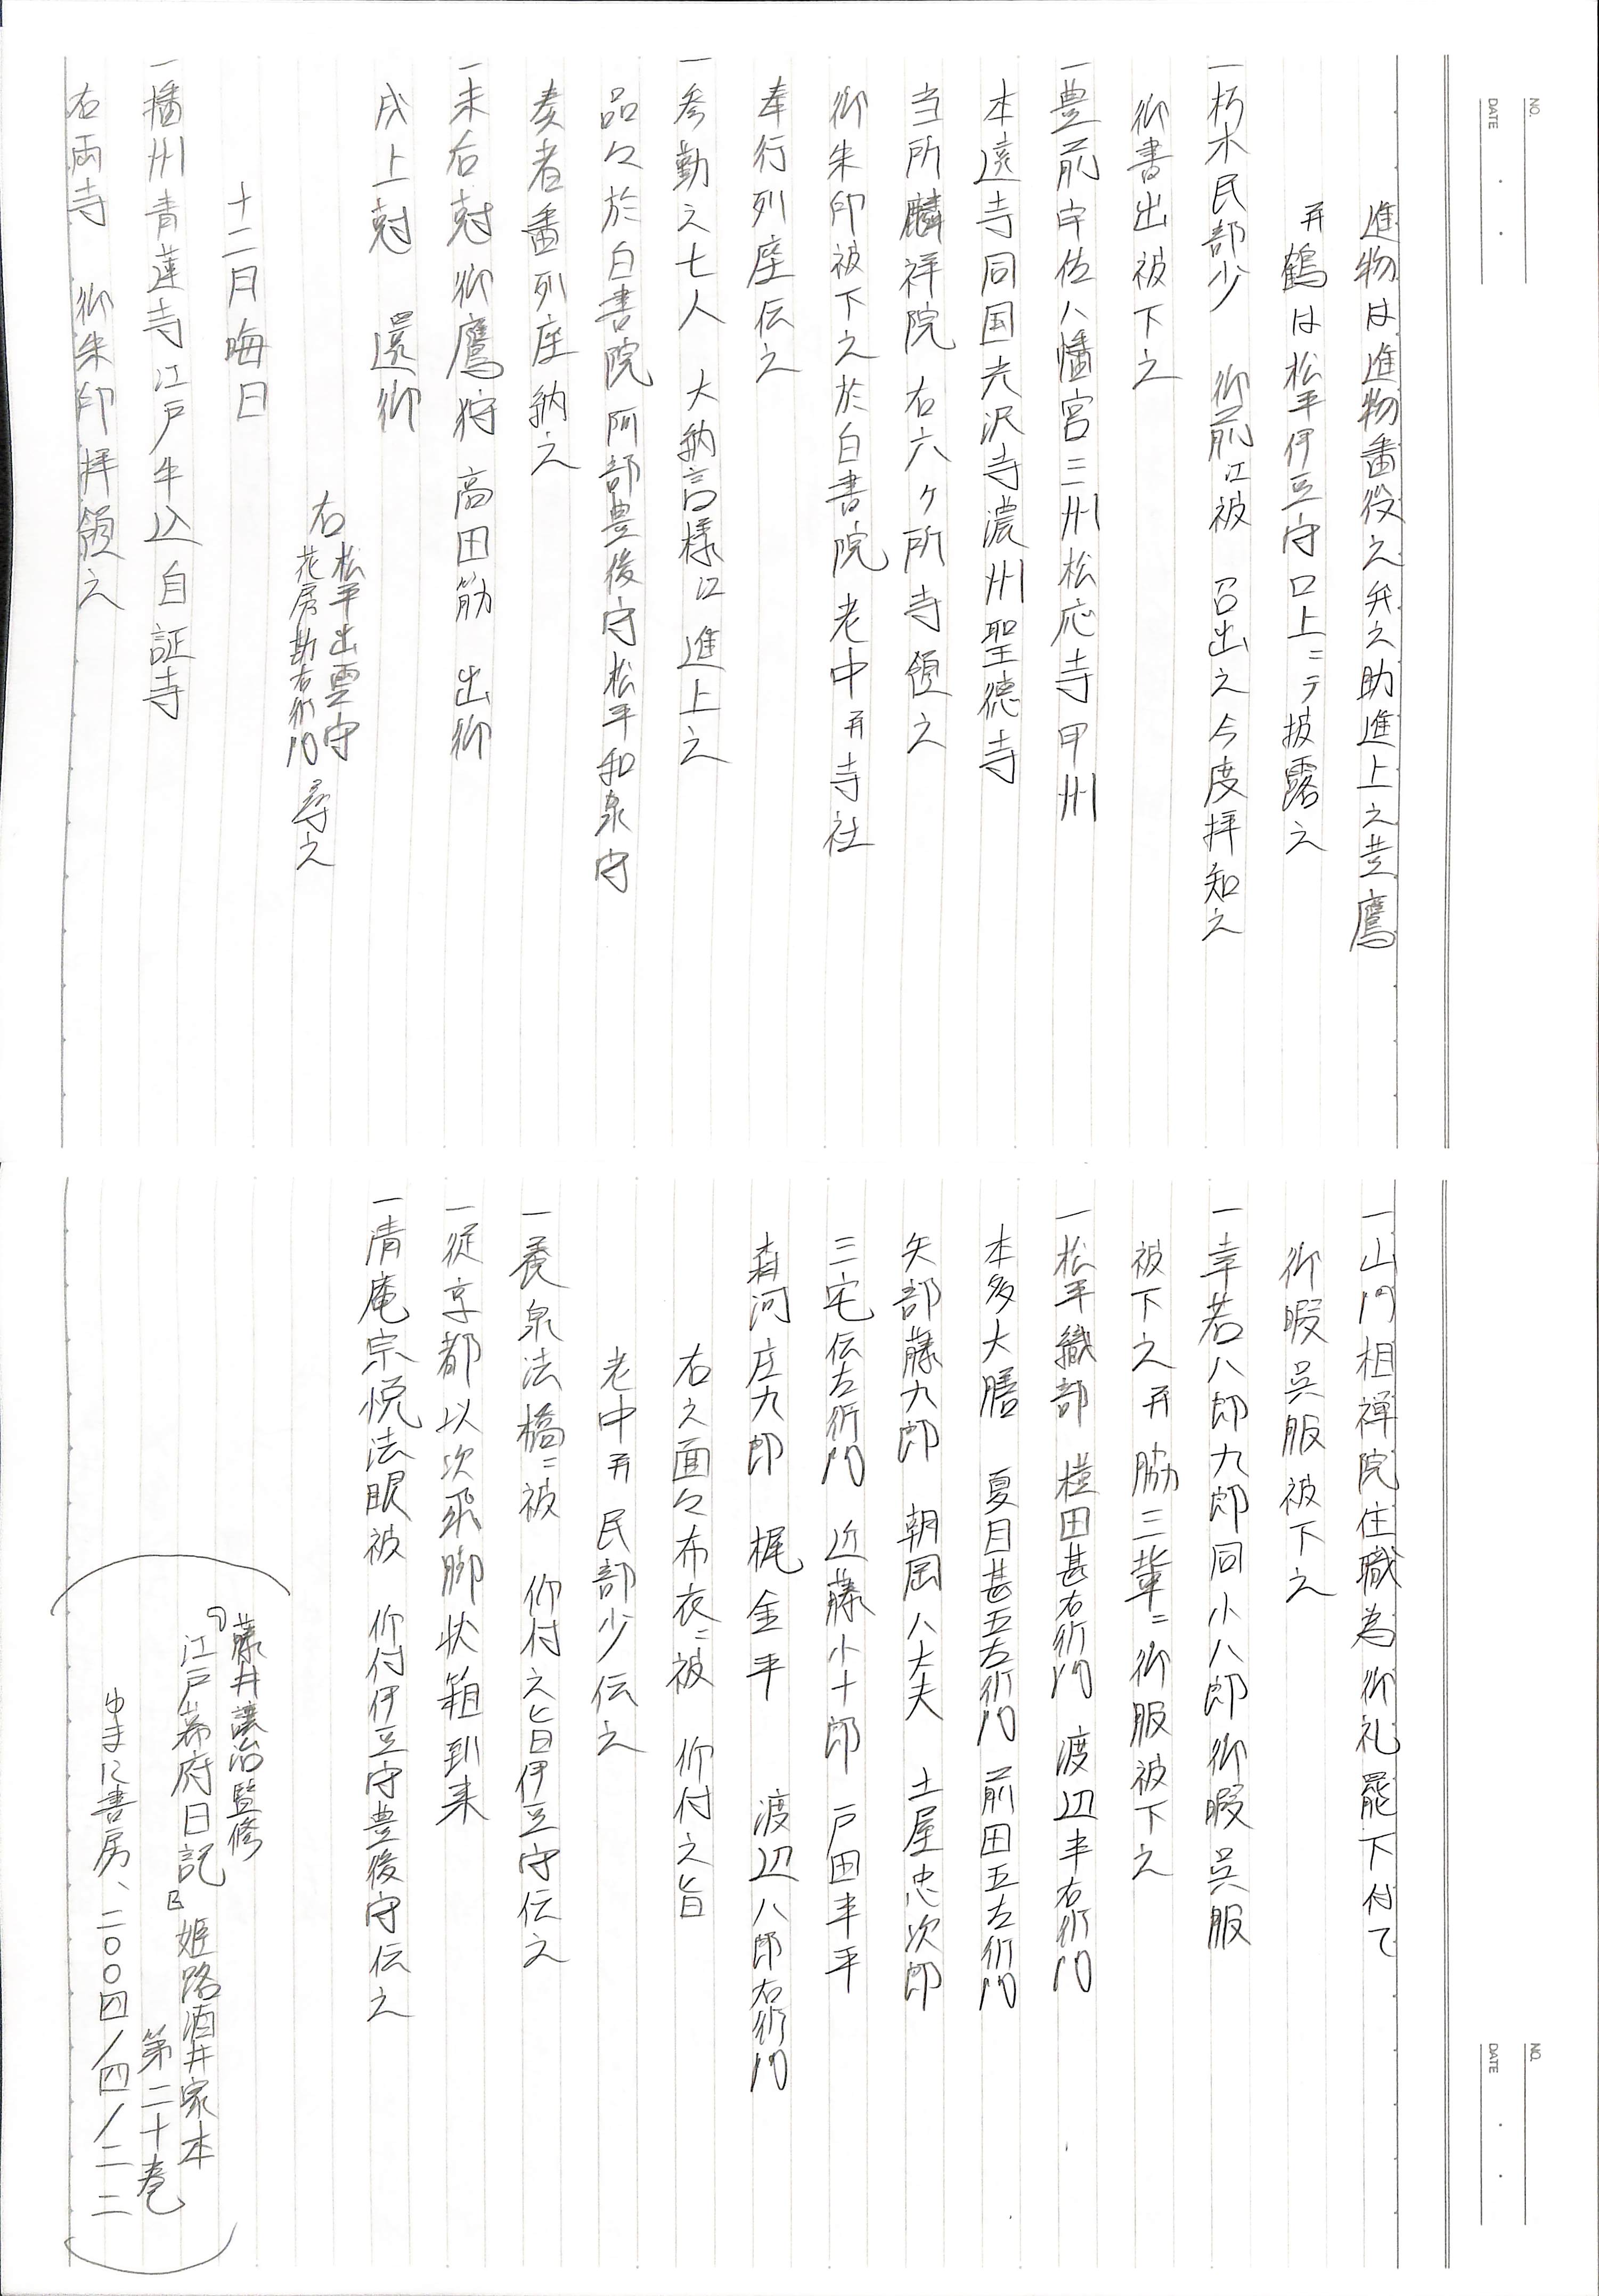 進物は進物番役之弁之助進上之菱鷹
并鶴は松平伊豆守口上ニテ披露之
一朽木民部少 御前江被 召出之今度拝知之
御書出被下之
一豊前宇佐八幡宮三州松応寺甲州
本遠寺同国光沢寺濃州聖徳寺
当所麟祥院 右六ケ所寺領之
御朱印被下之於白書院老中并寺社
奉行列座伝之
一参勤之七人 大納言様江進上之
品々於白書院阿部豊後守松平和泉守
奏者番列座納之
一未后尅御鷹狩 高田筋 出御
戌上尅 還御
右 松平出雲守
花房勘右衛門 尋之
十二月晦日
一播州青蓮寺江戸牛込自証寺
右両寺 御朱印拝領之
一山門相禅院住職為御礼罷下付て
御暇呉服被下之
一幸若八郎九郎同小八郎御暇呉服
被下之并脇三輩ニ御服被下之
一松平織部 植田甚右衛門 渡辺半右衛門
本多大膳 夏目甚五左衛門 前田五左衛門
矢部藤九郎 朝岡八大夫 土屋忠次郎
三宅伝左衛門 近藤小十郎 戸田半平
森河庄九郎 梶金平 渡辺八郎右衛門
右之面々布衣ニ被 仰付之旨
老中并民部少伝之
一養泉法橋ニ被 仰付之旨伊豆守伝之
一従京都以次飛脚状箱到来
一清庵宗悦法眼被 仰付伊豆守豊後守伝之
藤井讓治監修
『江戸幕府日記 姫路酒井家本』
第二十巻
ゆまに書房、二〇〇四/四/二二
NO.
DATE ・ ・
NO.
DATE ・ ・